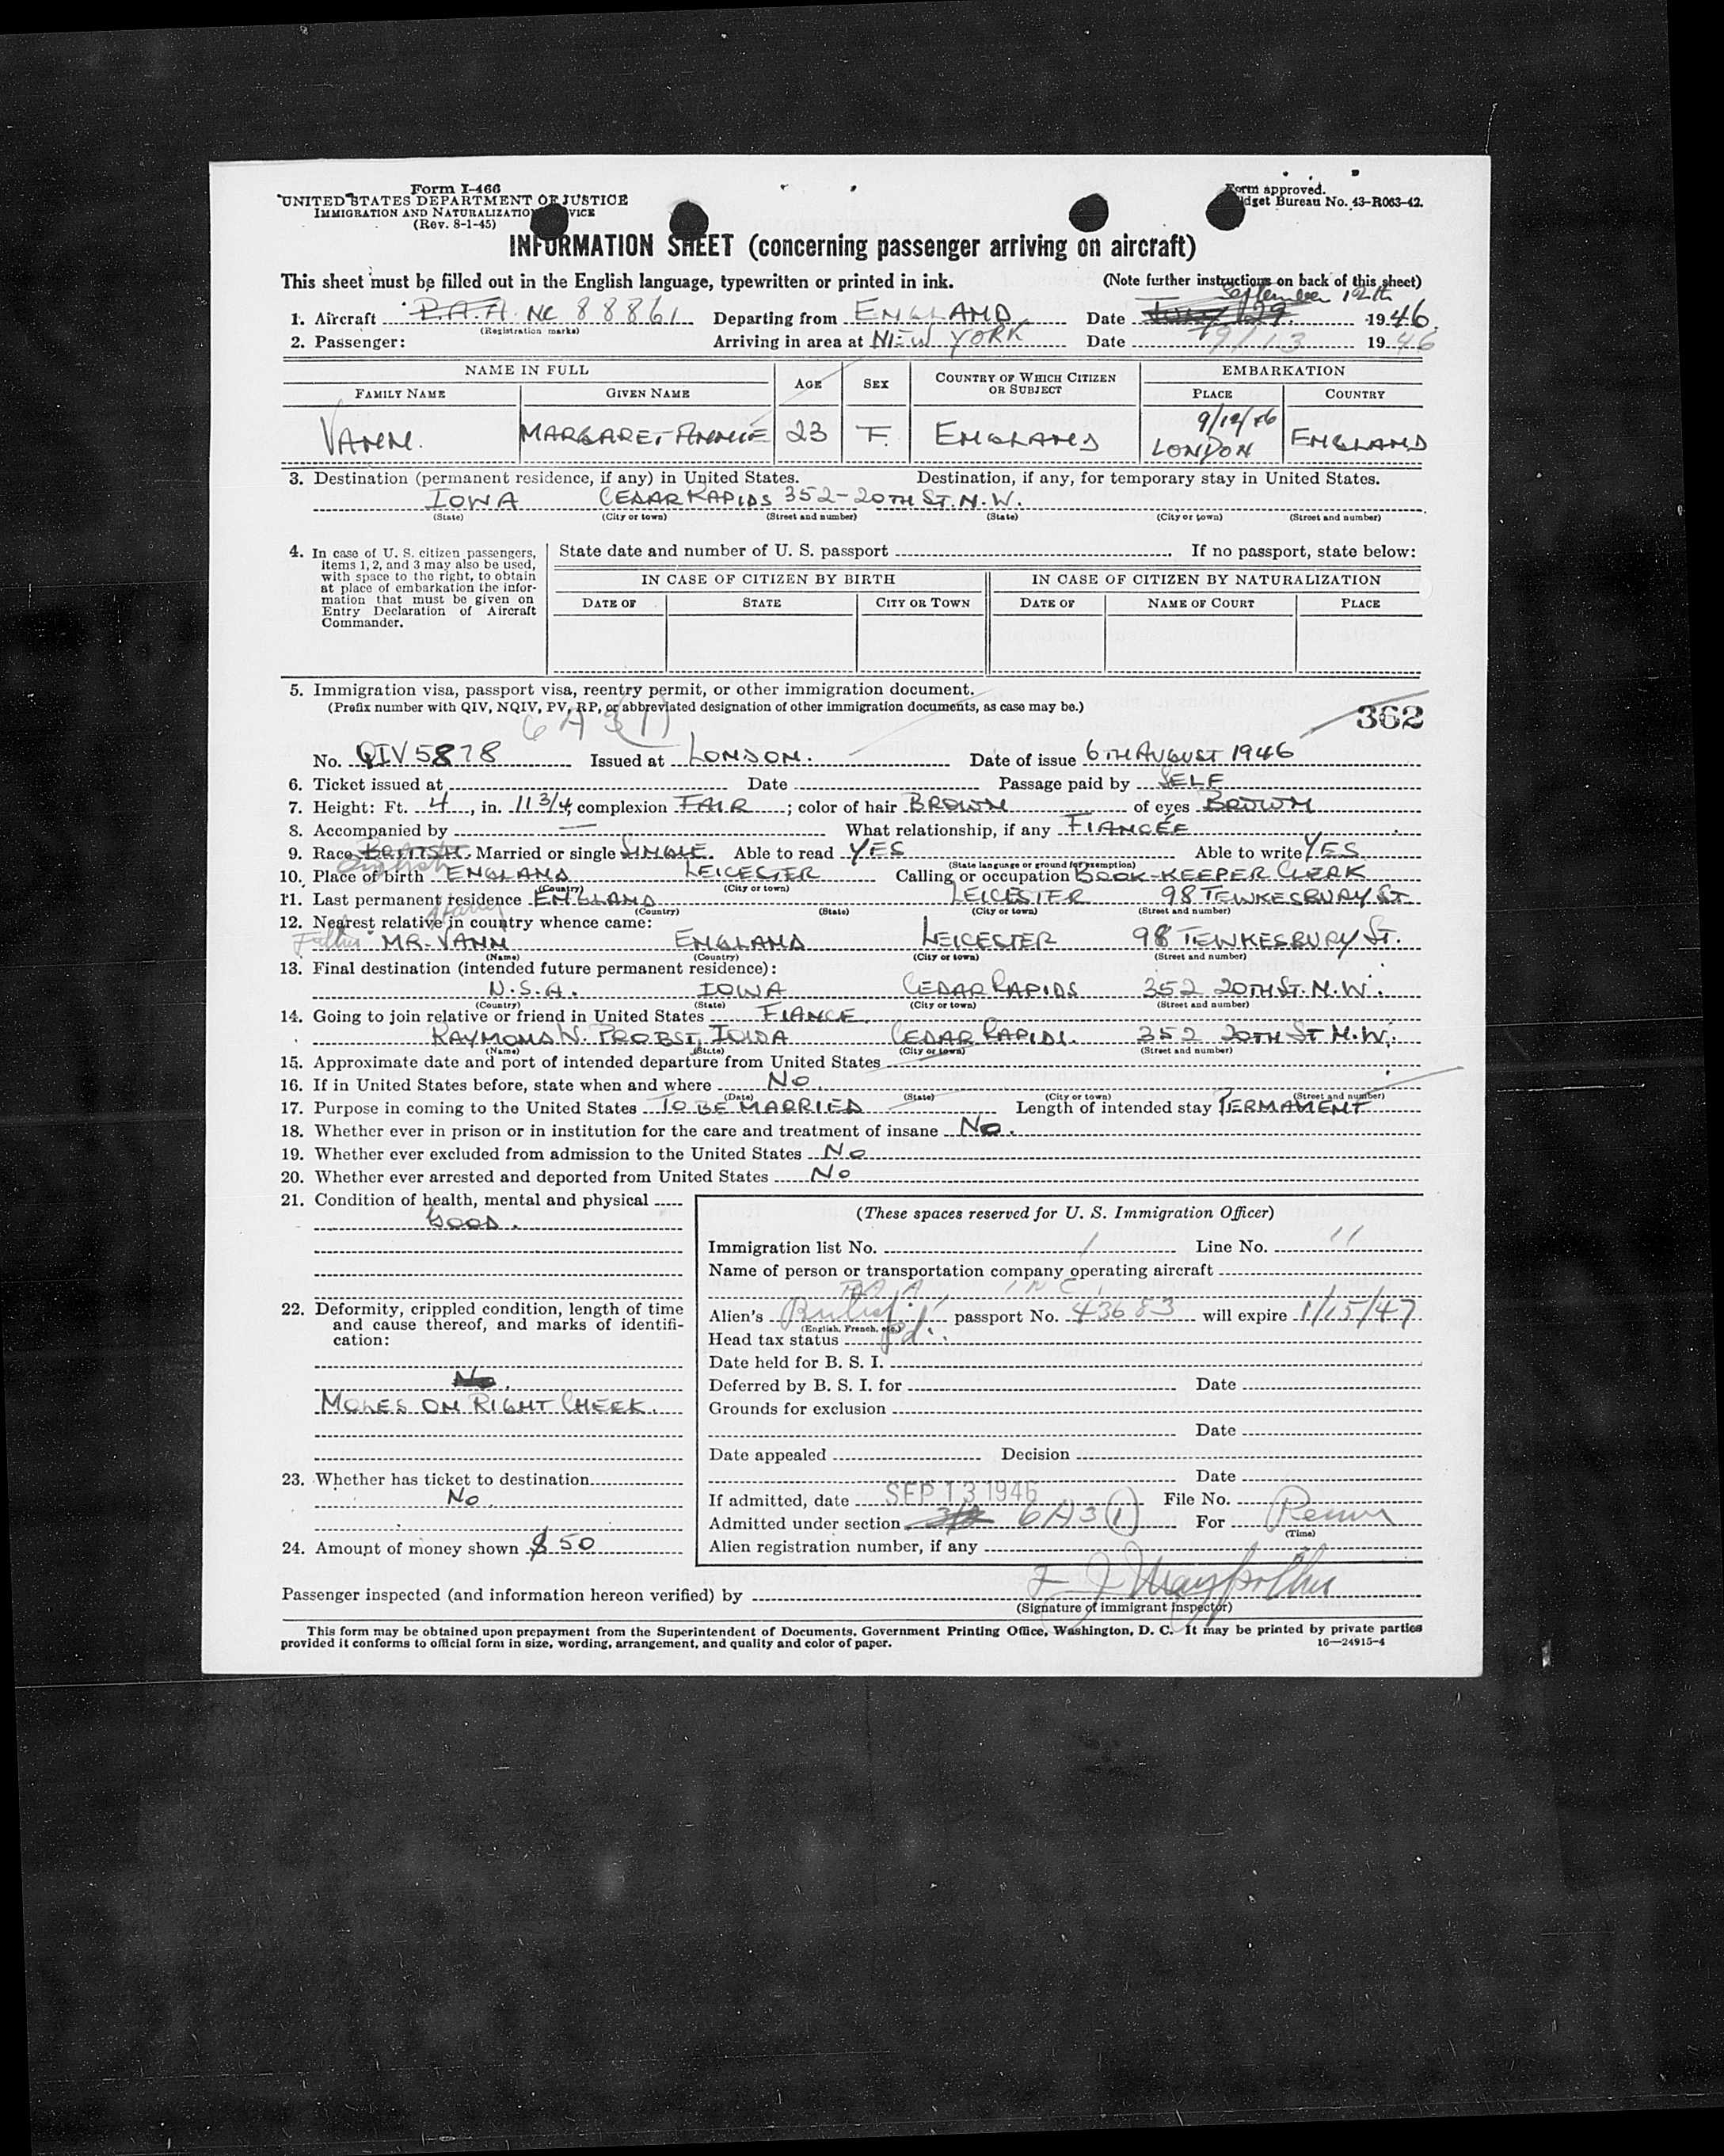 Form I-466
UNITED STATES DEPARTMENT OF JUSTICE
IMMIGRATION AND NATURALIZATION SERVICE
(Rev. 8-1-45)
Form approved.
Budget Bureau No. 43-R063-42.
INFORMATION SHEET (concerning passenger arriving on aircraft)
This sheet must be filled out in the English language, typewritten or printed in ink. (Note further instructions on back of this sheet)
September 12th
1. Aircraft P.A.A. NC 88861 Departing from ENGLAND Date July 29. 1946.
(Registration marks)
2. Passenger: Arriving in area at NEW YORK Date 9/13 1946
NAME IN FULL AGE SEX COUNTRY OF WHICH CITIZEN OR SUBJECT EMBARKATION
FAMILY NAME GIVEN NAME PLACE COUNTRY
9/12/46
VANN. MARGARET ANNIE 23 F. ENGLAND LONDON ENGLAND
3. Destination (permanent residence, if any) in United States. Destination, if any, for temporary stay in United States.
IOWA CEDAR RAPIDS 352-20TH ST. N.W.
(State) (City or town) (Street and number) (State) (City or town) (Street and number)
4. In case of U. S. citizen passengers, items 1, 2, and 3 may also be used, with space to the right, to obtain at place of embarkation the information that must be given on Entry Declaration of Aircraft Commander.
State date and number of U. S. passport If no passport, state below:
IN CASE OF CITIZEN BY BIRTH IN CASE OF CITIZEN BY NATURALIZATION
DATE OF STATE CITY OR TOWN DATE OF NAME OF COURT PLACE
5. Immigration visa, passport visa, reentry permit, or other immigration document.
(Prefix number with QIV, NQIV, PV, RP, or abbreviated designation of other immigration documents, as case may be.)
6A3(1)
362
No. QIV 5878 Issued at LONDON. Date of issue 6TH AUGUST 1946
6. Ticket issued at Date Passage paid by SELF
7. Height: Ft. 4, in. 11 3/4, complexion FAIR; color of hair BROWN of eyes BROWN
8. Accompanied by — What relationship, if any FIANCÉE
9. Race BRITISH. Married or single SINGLE. Able to read YES Able to write YES
English
(State language or ground for exemption)
10. Place of birth ENGLAND LEICESTER Calling or occupation BOOK-KEEPER CLERK
(Country) (City or town)
11. Last permanent residence ENGLAND LEICESTER 98 TEWKESBURY ST
(Country) (State) (City or town) (Street and number)
12. Nearest relative in country whence came:
Harry
Father MR. VANN ENGLAND LEICESTER 98 TEWKESBURY ST.
(Name) (Country) (City or town) (Street and number)
13. Final destination (intended future permanent residence):
U.S.A. IOWA CEDAR RAPIDS 352 20TH ST. N.W.
(Country) (State) (City or town) (Street and number)
14. Going to join relative or friend in United States FIANCE.
RAYMOND W. PROBST, IOWA CEDAR RAPIDS. 352 20TH ST N.W.
(Name) (State) (City or town) (Street and number)
15. Approximate date and port of intended departure from United States
16. If in United States before, state when and where No.
(Date) (State) (City or town) (Street and number)
17. Purpose in coming to the United States TO BE MARRIED Length of intended stay PERMANENT
18. Whether ever in prison or in institution for the care and treatment of insane No.
19. Whether ever excluded from admission to the United States No
20. Whether ever arrested and deported from United States No
21. Condition of health, mental and physical
GOOD.
22. Deformity, crippled condition, length of time and cause thereof, and marks of identification:
No.
MOLES ON RIGHT CHEEK.
23. Whether has ticket to destination
No.
24. Amount of money shown $50
(These spaces reserved for U. S. Immigration Officer)
Immigration list No. 1 Line No. 11
Name of person or transportation company operating aircraft
P.A.A. INC.
Alien's British passport No. 43683 will expire 1/15/47
(English, French, etc.)
Head tax status pd.
Date held for B. S. I.
Deferred by B. S. I. for Date
Grounds for exclusion
Date
Date appealed Decision
Date
If admitted, date SEP 13 1946 File No.
Admitted under section 6A3(1) For Perm
(Time)
Alien registration number, if any
Passenger inspected (and information hereon verified) by
(Signature of immigrant inspector)
This form may be obtained upon prepayment from the Superintendent of Documents, Government Printing Office, Washington, D. C. It may be printed by private parties
provided it conforms to official form in size, wording, arrangement, and quality and color of paper. 16—24915-4